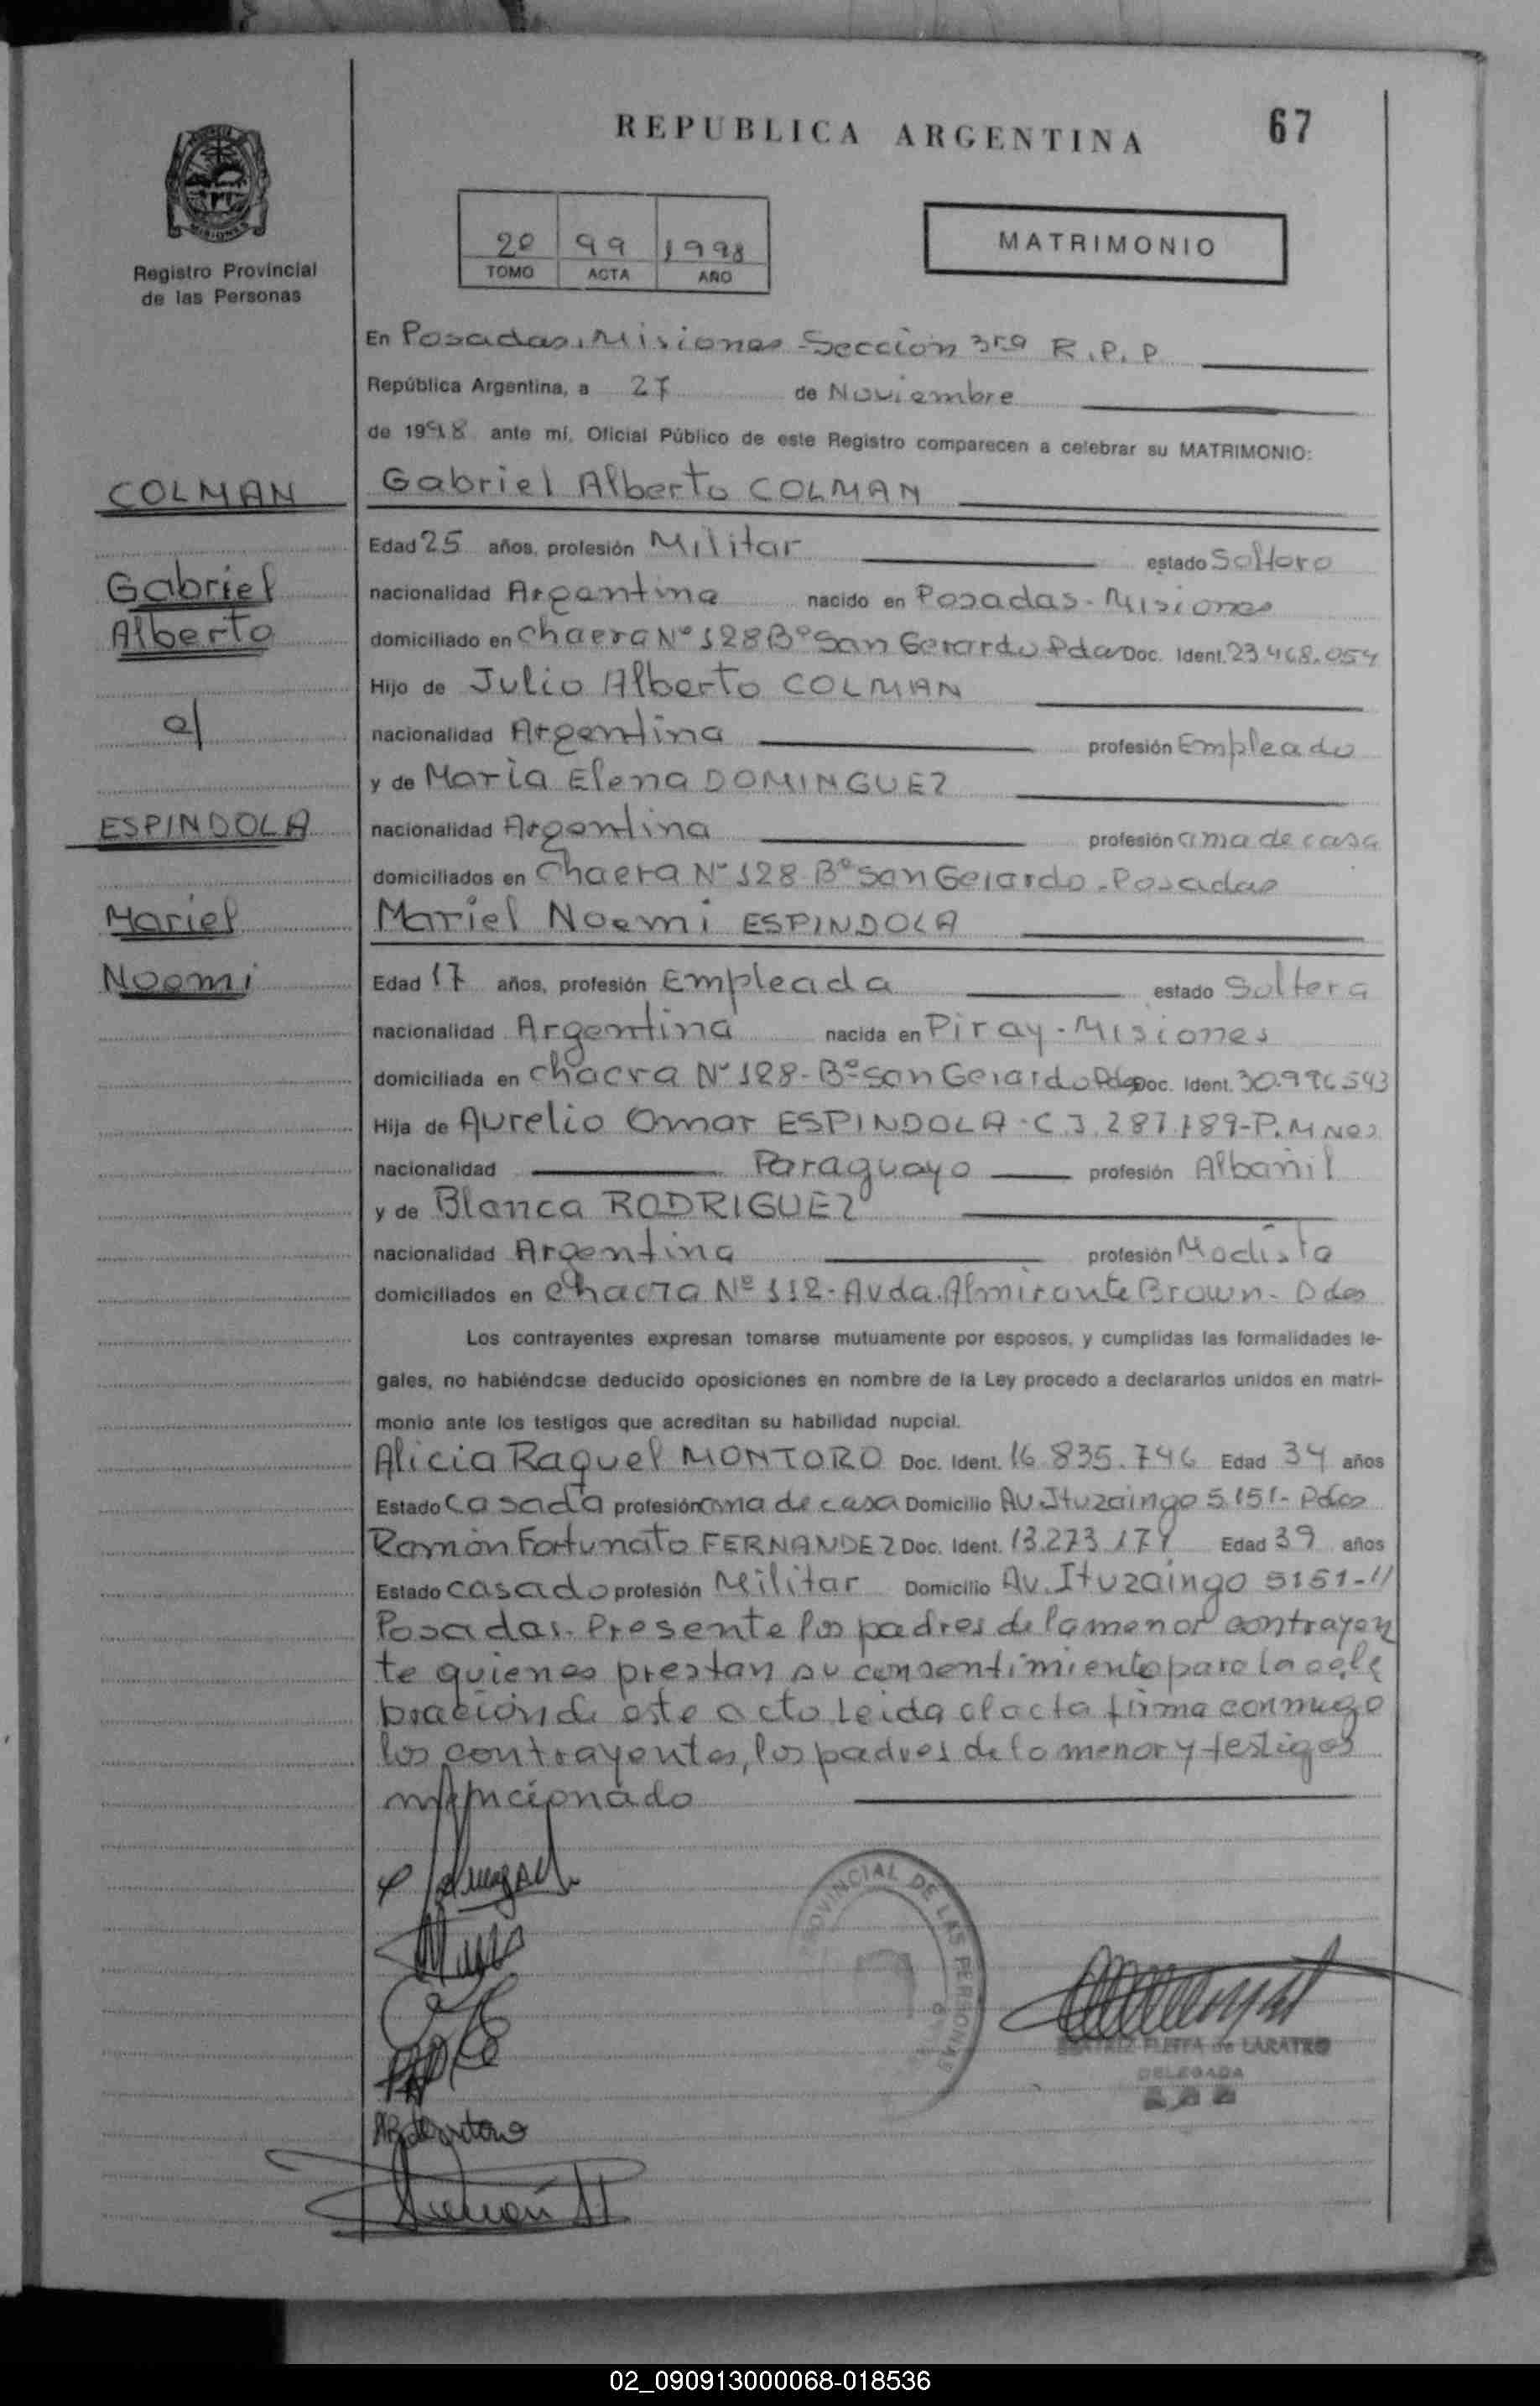 REPUBLICA ARGENTINA
67
MISIONES
Registro Provincial
de las Personas
20 99 1998
TOMO ACTA AÑO
MATRIMONIO
En Posadas, Misiones Sección 3ra R.P.P
República Argentina, a 27 de Noviembre
de 1998 ante mí, Oficial Público de este Registro comparecen a celebrar su MATRIMONIO:
COLMAN
Gabriel Alberto COLMAN
Edad 25 años, profesión Militar estado Soltero
Gabriel
nacionalidad Argentina nacido en Posadas - Misiones
Alberto
domiciliado en Chacra Nº 128 Bº San Gerardo Pdas Doc. Ident. 23.468.054
Hijo de Julio Alberto COLMAN
c/
nacionalidad Argentina profesión Empleado
y de María Elena DOMINGUEZ
ESPINDOLA
nacionalidad Argentina profesión ama de casa
domiciliados en Chacra Nº 128 Bº San Gerardo - Posadas
Mariel
Mariel Noemi ESPINDOLA
Noemi
Edad 17 años, profesión Empleada estado Soltera
nacionalidad Argentina nacida en Piray - Misiones
domiciliada en Chacra Nº 128 - Bº San Gerardo Pdas Doc. Ident. 30.996.543
Hija de Aurelio Omar ESPINDOLA - C.I. 287.189 - P. Mnes
nacionalidad Paraguayo profesión Albañil
y de Blanca RODRIGUEZ
nacionalidad Argentina profesión Modista
domiciliados en Chacra Nº 112 - Avda. Almirante Brown - Pdas
Los contrayentes expresan tomarse mutuamente por esposos, y cumplidas las formalidades le-
gales, no habiéndose deducido oposiciones en nombre de la Ley procedo a declararlos unidos en matri-
monio ante los testigos que acreditan su habilidad nupcial.
Alicia Raquel MONTORO Doc. Ident. 16.835.746 Edad 34 años
Estado Casada profesión ama de casa Domicilio Av. Ituzaingo 5151 - Pdas
Ramón Fortunato FERNANDEZ Doc. Ident. 13.273.177 Edad 39 años
Estado casado profesión Militar Domicilio Av. Ituzaingo 5151 - //
Posadas. Presente los padres de la menor contrayen
te quienes prestan su consentimiento para la cele
bración de este acto Leida el acta firma conmigo
los contrayentes, los padres de la menor y testigos
mencionado
PROVINCIAL DE LAS PERSONAS
de LARATRO
DELEGADA
02_090913000068-018536